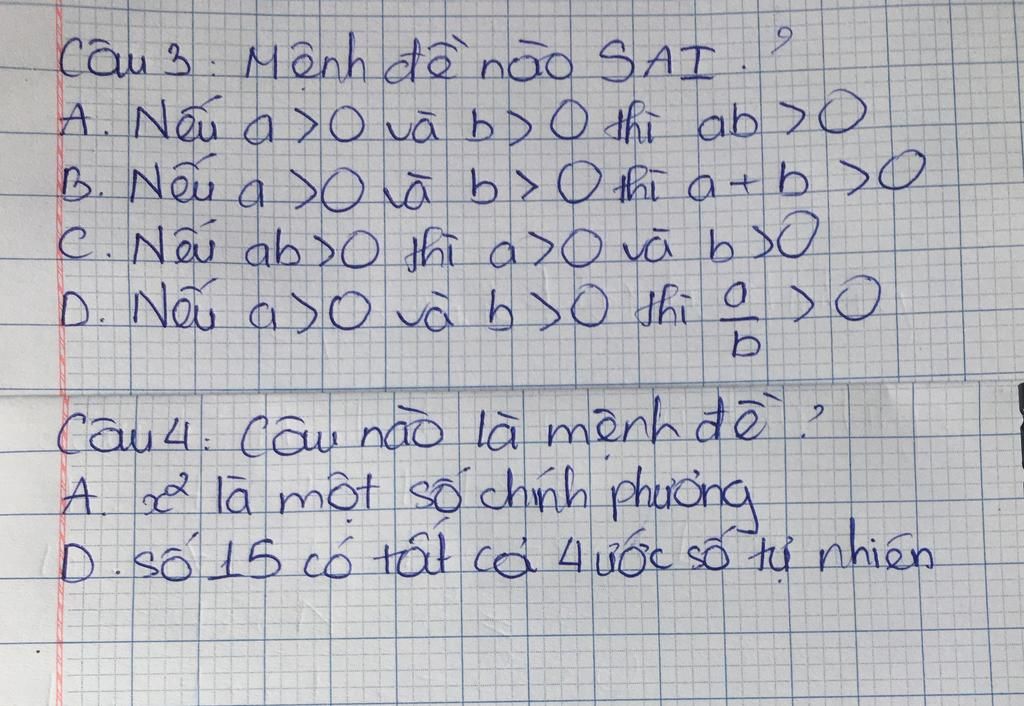 Câu 3: Mệnh đề nào SAI.?
A. Nếu a > 0 và b > 0 thì ab > 0
B. Nếu a > 0 và b > 0 thì a + b > 0
C. Nếu ab > 0 thì a > 0 và b > 0
D. Nếu a > 0 và b > 0 thì a/b > 0
Câu 4: Câu nào là mệnh đề?
A. x² là một số chính phương
D. số 15 có tất cả 4 ước số tự nhiên